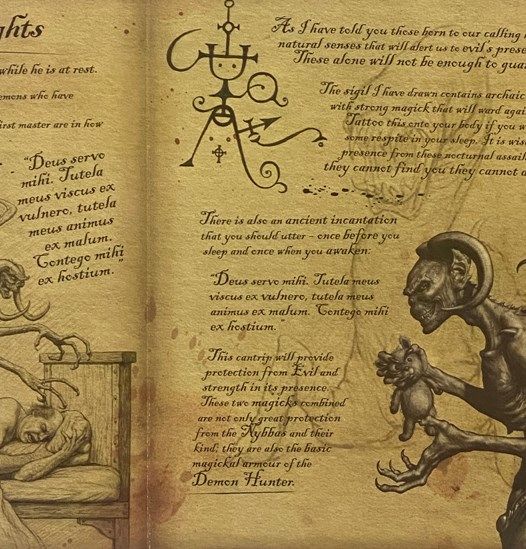 ghts
while he is at rest.
emons who have
first master are in how
"Deus servo
mihi. Tutela
meus viscus ex
vulnero, tutela
meus animus
ex malum.
Contego mihi
ex hostium."
As I have told you those born to our calling
natural senses that will alert us to evil's
These alone will not be enough to
The sigil I have drawn contains archaic
with strong magick that will ward
Tattoo this onto your body if you
some respite in your sleep. It is
presence from these nocturnal
they cannot find you they cannot
There is also an ancient incantation
that you should utter - once before you
sleep and once when you awaken:
"Deus servo mihi. Tutela meus
viscus ex vulnero, tutela meus
animus ex malum. Contego mihi
ex hostium."
This cantrip will provide
protection from Evil and
strength in its presence.
These two magicks combined
are not only great protection
from the Nybbas and their
kind, they are also the basic
magickal armour of the
Demon Hunter.